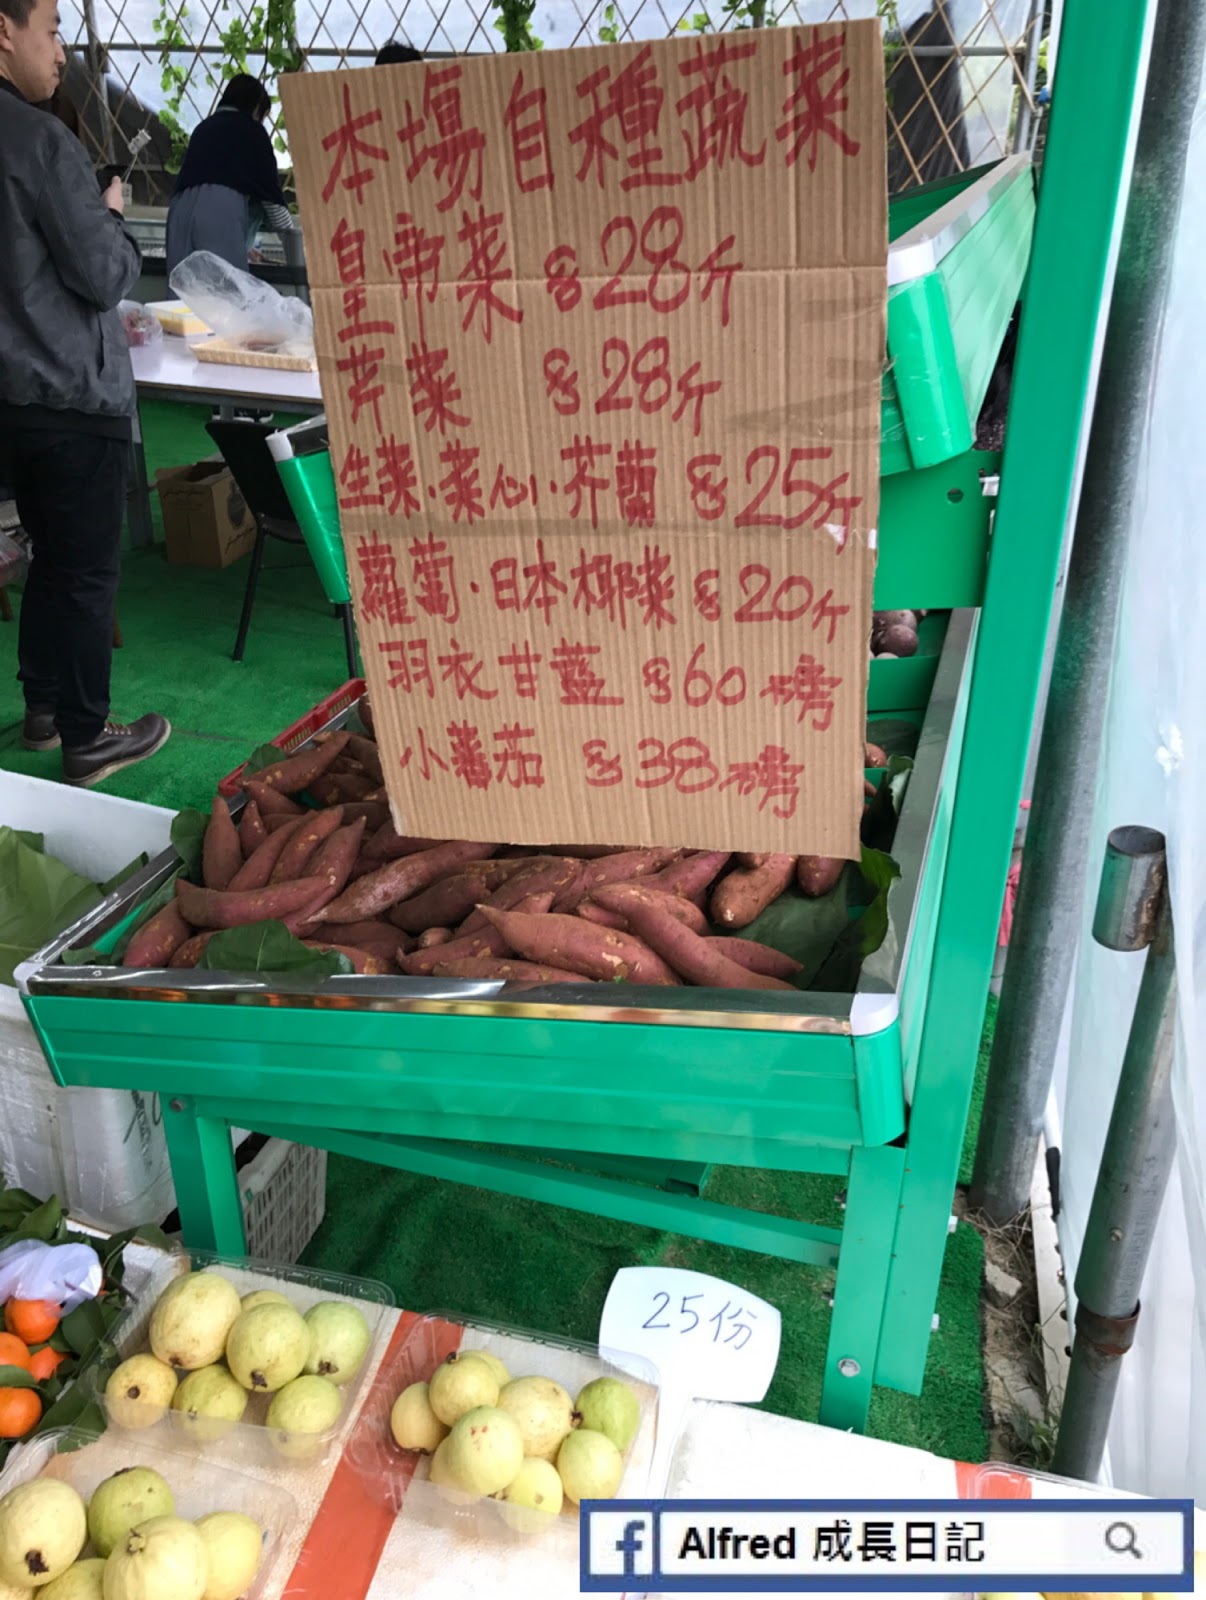 本場自種蔬菜
皇帝菜 $28斤
芹菜 $28斤
生菜·菜心·芥蘭 $25斤
蘿蔔·日本椰菜 $20斤
羽衣甘藍 $60磅
小蕃茄 $38磅
25份
f Alfred 成長日記